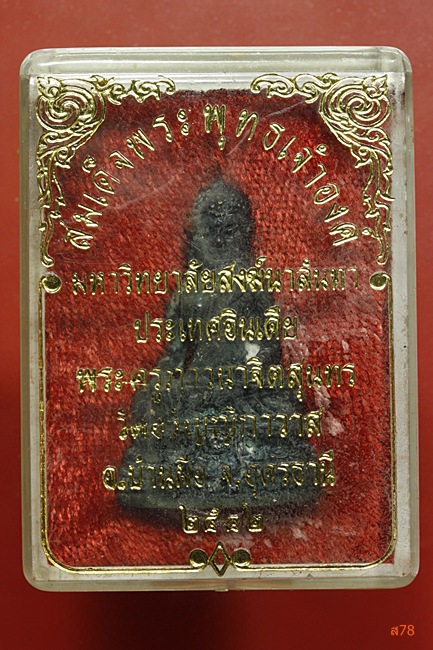 สมเด็จพระพุทธเจ้าองค์
มหาวิทยาลัยสงฆ์นาลันทา
ประเทศอินเดีย
พระครูภาวนาจิตสุนทร
อ.บ้านดุง จ.อุดรธานี
๒๕๔๒
ส78